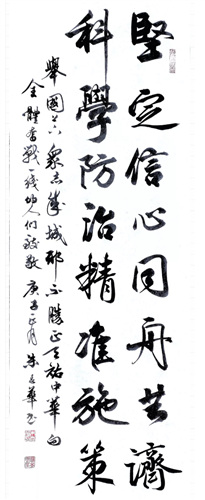 堅定信心同舟共濟
科學防治精准施策
舉國上下衆志成城邪不勝正天祐中華向
全體奮戰一綫的人们致敬庚子正月朱華書